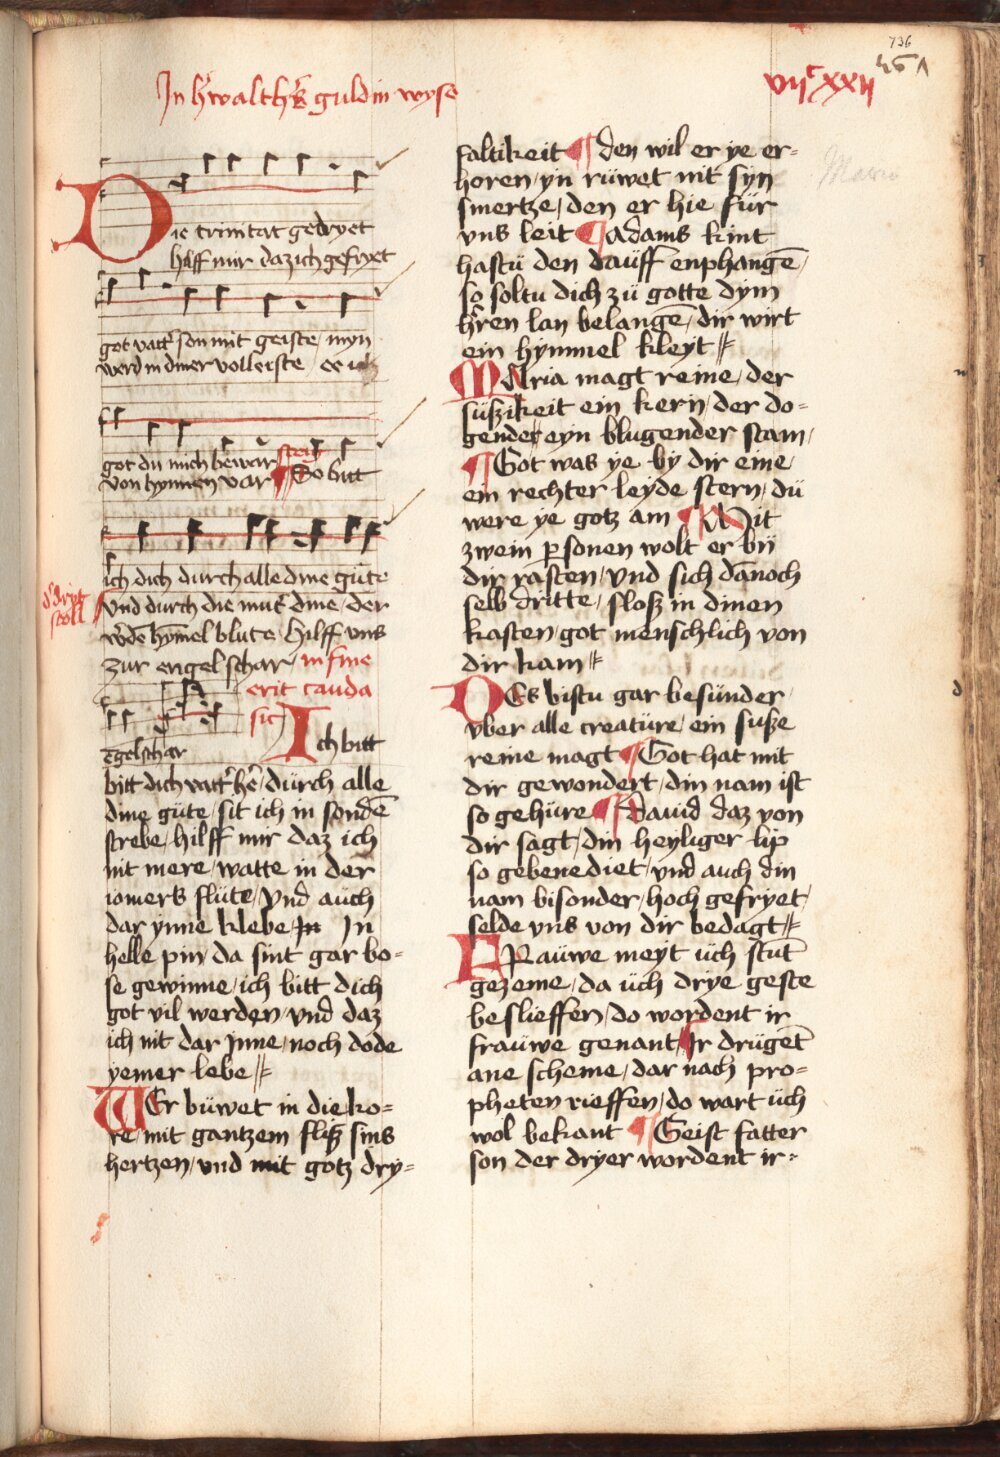 736
In h'walth's guldin wyse
vijc xxij
Die trinitat gedryet
hilff mir daz ich gefryet
got vatt' son mit geiste / myn
werd in diner volleiste / ee ich
got du mich bewar steig
von hynnen var ¶ So bitt
ich dich durch alle dine güte
d' dryt
stoll
vnd durch die mut' dine / der
w'dē hȳmel blute / hilff vns
zur engel schar / in fine
erit cauda
sic
ēgelschar
Ich bitt
bitt dich vatt' h'e / dürch alle
dine güte / sit ich in sondē
strebe / hilff mir daz ich
nit mere / watte in der
iomers flüte / vnd aüch
dar ynne klebe / In
helle pin / da sint gar bo-
se gewinne / ich bitt dich
got vil werden / vnd daz
ich nit dar jnne / noch dode
yemer lebe //
WEr büwet in die ko-
re / mit gantzem fliß sins
hertzen / vnd mit gotz dry-
faltikeit ¶ den wil er ye er-
horen / yn rüwet nit syn
smertze / den er hie für
vns leit ¶ Adams kint
hastü den daüff enphangē /
so soltu dich zü gotte dym
h'ren lan belangē / dir wirt
ein hymmel kleyt //
MAria magt reine / der
süßikeit ein kern / der do-
gender eyn blugender stam /
¶ Got was ye by dir eine /
ein rechter leyde stern / dü
were ye gotz am ¶ Mit
zwein psonen wolt er bij
dir rasten / vnd sich dānoch
selb dritte / sloß in dinen
kasten / got menschlich von
dir kam //
DEs bistu gar besünder /
vber alle creatüre / ein suße
reine magt ¶ Got hat mit
dir gewondert / din nam ist
so gehüre ¶ Dauid daz von
dir sagt / din heyliger lip
so gebenediet / vnd auch din
nam bisonder / hoch gefryet /
selde vns von dir bedagt //
FRaüwe meyt üch stūt
gezeme / da üch drye geste
beslieffen / do wordent ir
fraüwe genant ¶ Ir drügēt
ane scheme / dar nach pro-
pheten rieffen / do wart üch
wol bekant ¶ Geist fatter
son der dryer wordent ir-